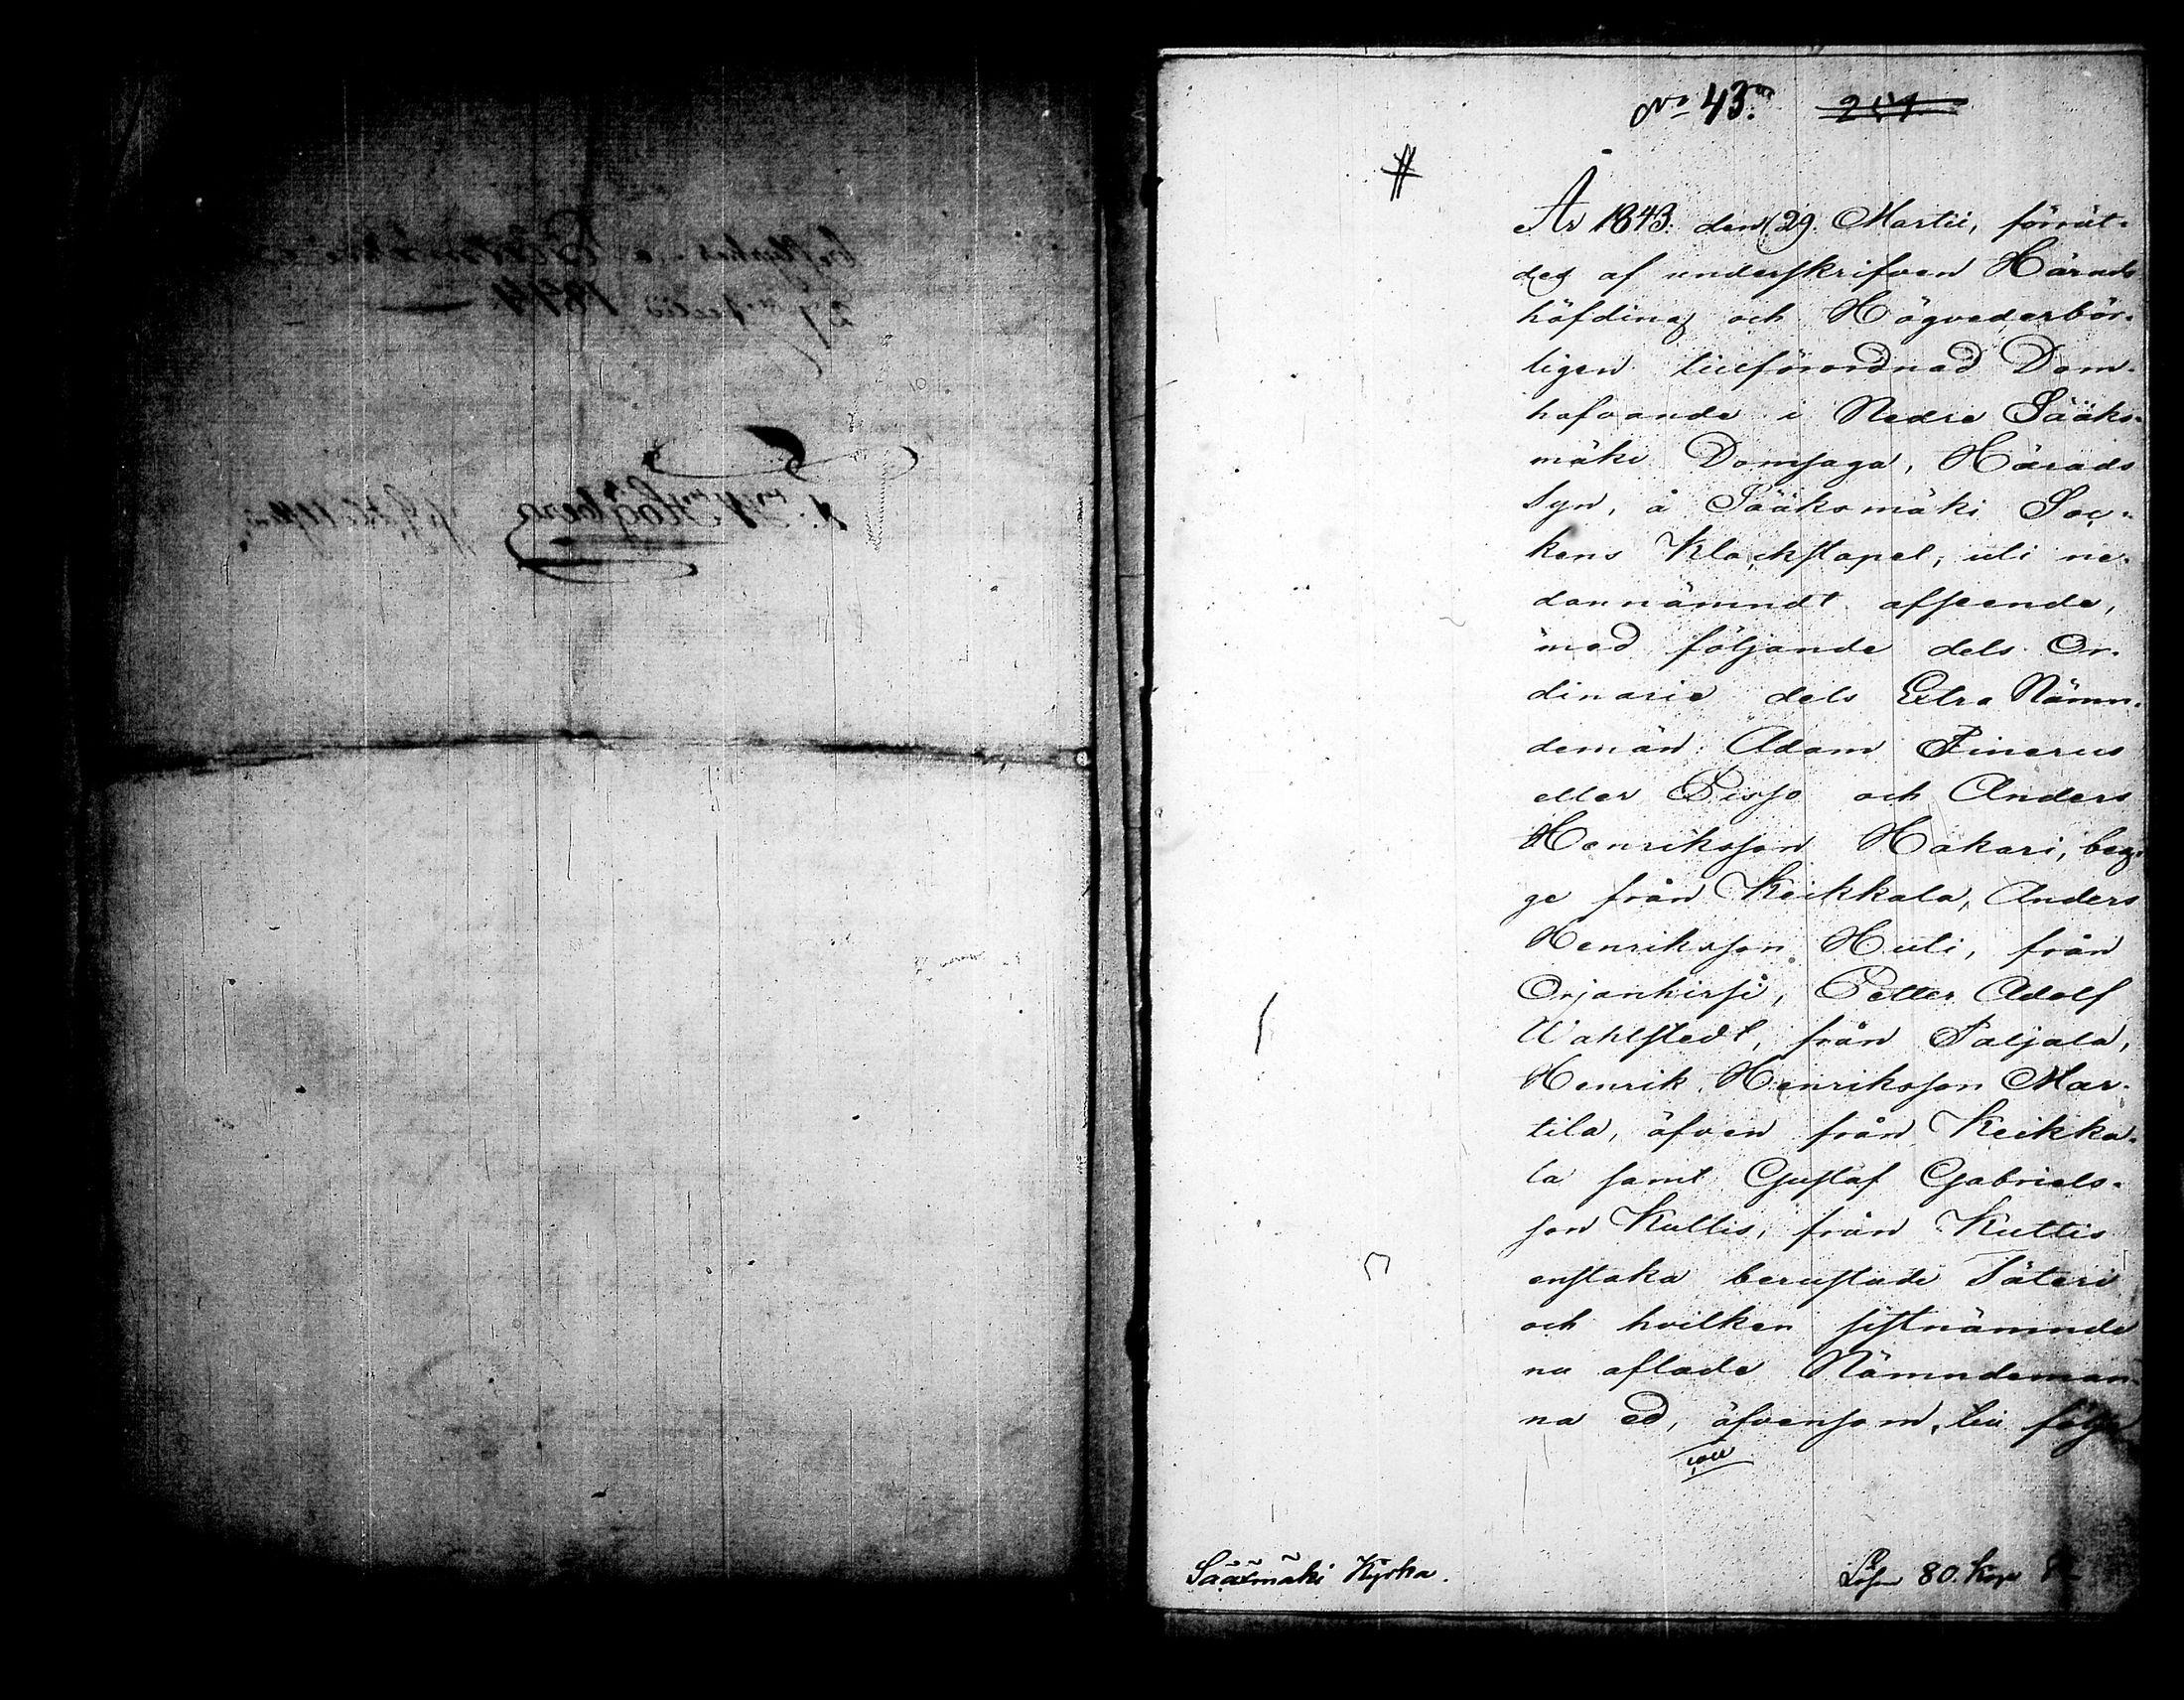 No 43.
År 1843. den 29. Martii, förrät-
des af underskrifven Härads
höfding och Högvederbör-
ligen tillförordnad Dom-
hafvande i Nedre Sääks-
mäki Domsaga, Härads
Syn, å Sääksmäki Soc-
kens Klockstapel, uti ne-
dannämndt afseende,
med följande dels Or-
dinarie dels Extra Nämn-
demän: Adam Finerus
eller Sisso och Anders
Henriksson Hakari, beg-
ge från Keikkala, Anders
Henriksson Huli, från
Orjanhirsi, Petter Adolf
Wahlstedt, från Saljala,
Henrik Henriksson Mar-
tila, äfven från Keikka-
la samt Gustaf Gabriels-
son Kuttis, från Kuttis
enstaka berustade Säteri
och hvilken sistnämnde
nu aflade Nämndeman-
na ed, äfvensom, till följe
Sääxmäki Kyrka.
Lösen 80. Kop